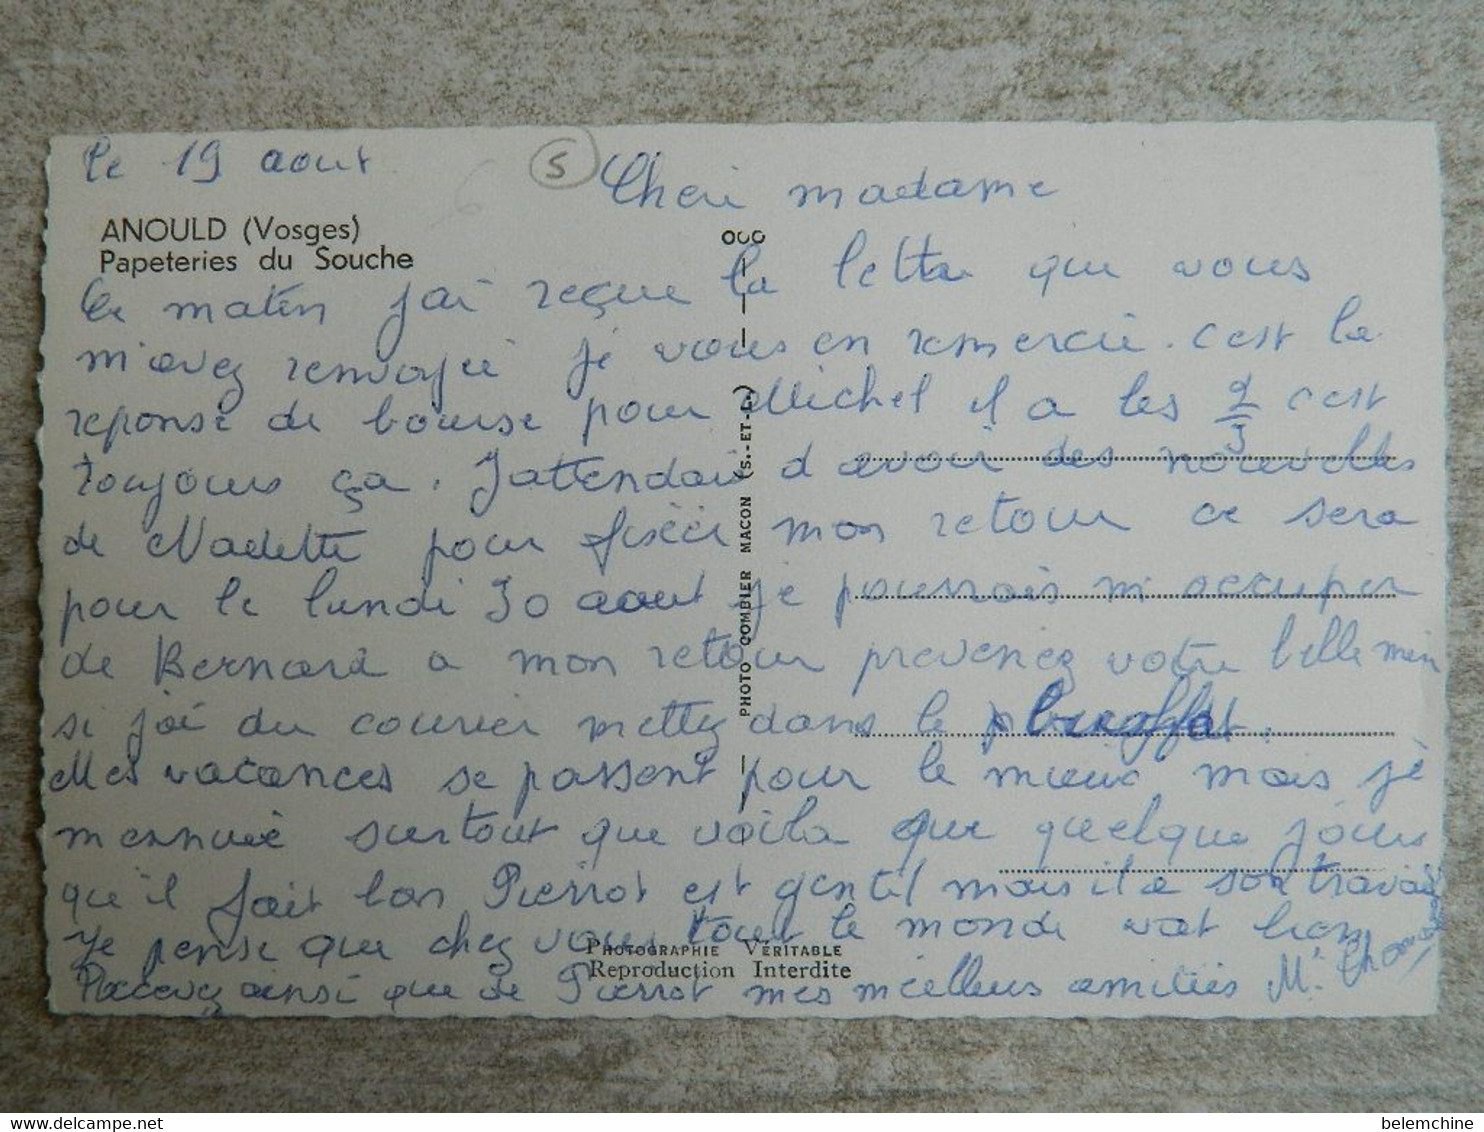 le 19 aout
5
Cheri madame
ANOULD (Vosges)
Papeteries du Souche
Ce matin j'ai reçue la lettre que vous
m'avez renvoyée je vous en remercie. c'est la
reponse de bourse pour Michel il a les 2/3 c'est
toujours ça. J'attendais d avoir des nouvelles
de Nadette pour fixèr mon retour ce sera
pour le lundi 30 aout je pourrais m occuper
de Bernard a mon retour prevenez votre belle mèr
si j'ai du courier mettez dans le
Mes vacances se passent pour le mieux mais je
m'ennuie surtout que voila que quelque jours
qu'il fait bon Pierrot est gentil mais il a son travail
Je pense que chez vous tout le monde vat bien
Recevez ainsi que de Pierrot mes meilleurs amitiés M.
PHOTO COMBIER MACON (S.-ET-L.)
PHOTOGRAPHIE VÉRITABLE
Reproduction Interdite
belemchine